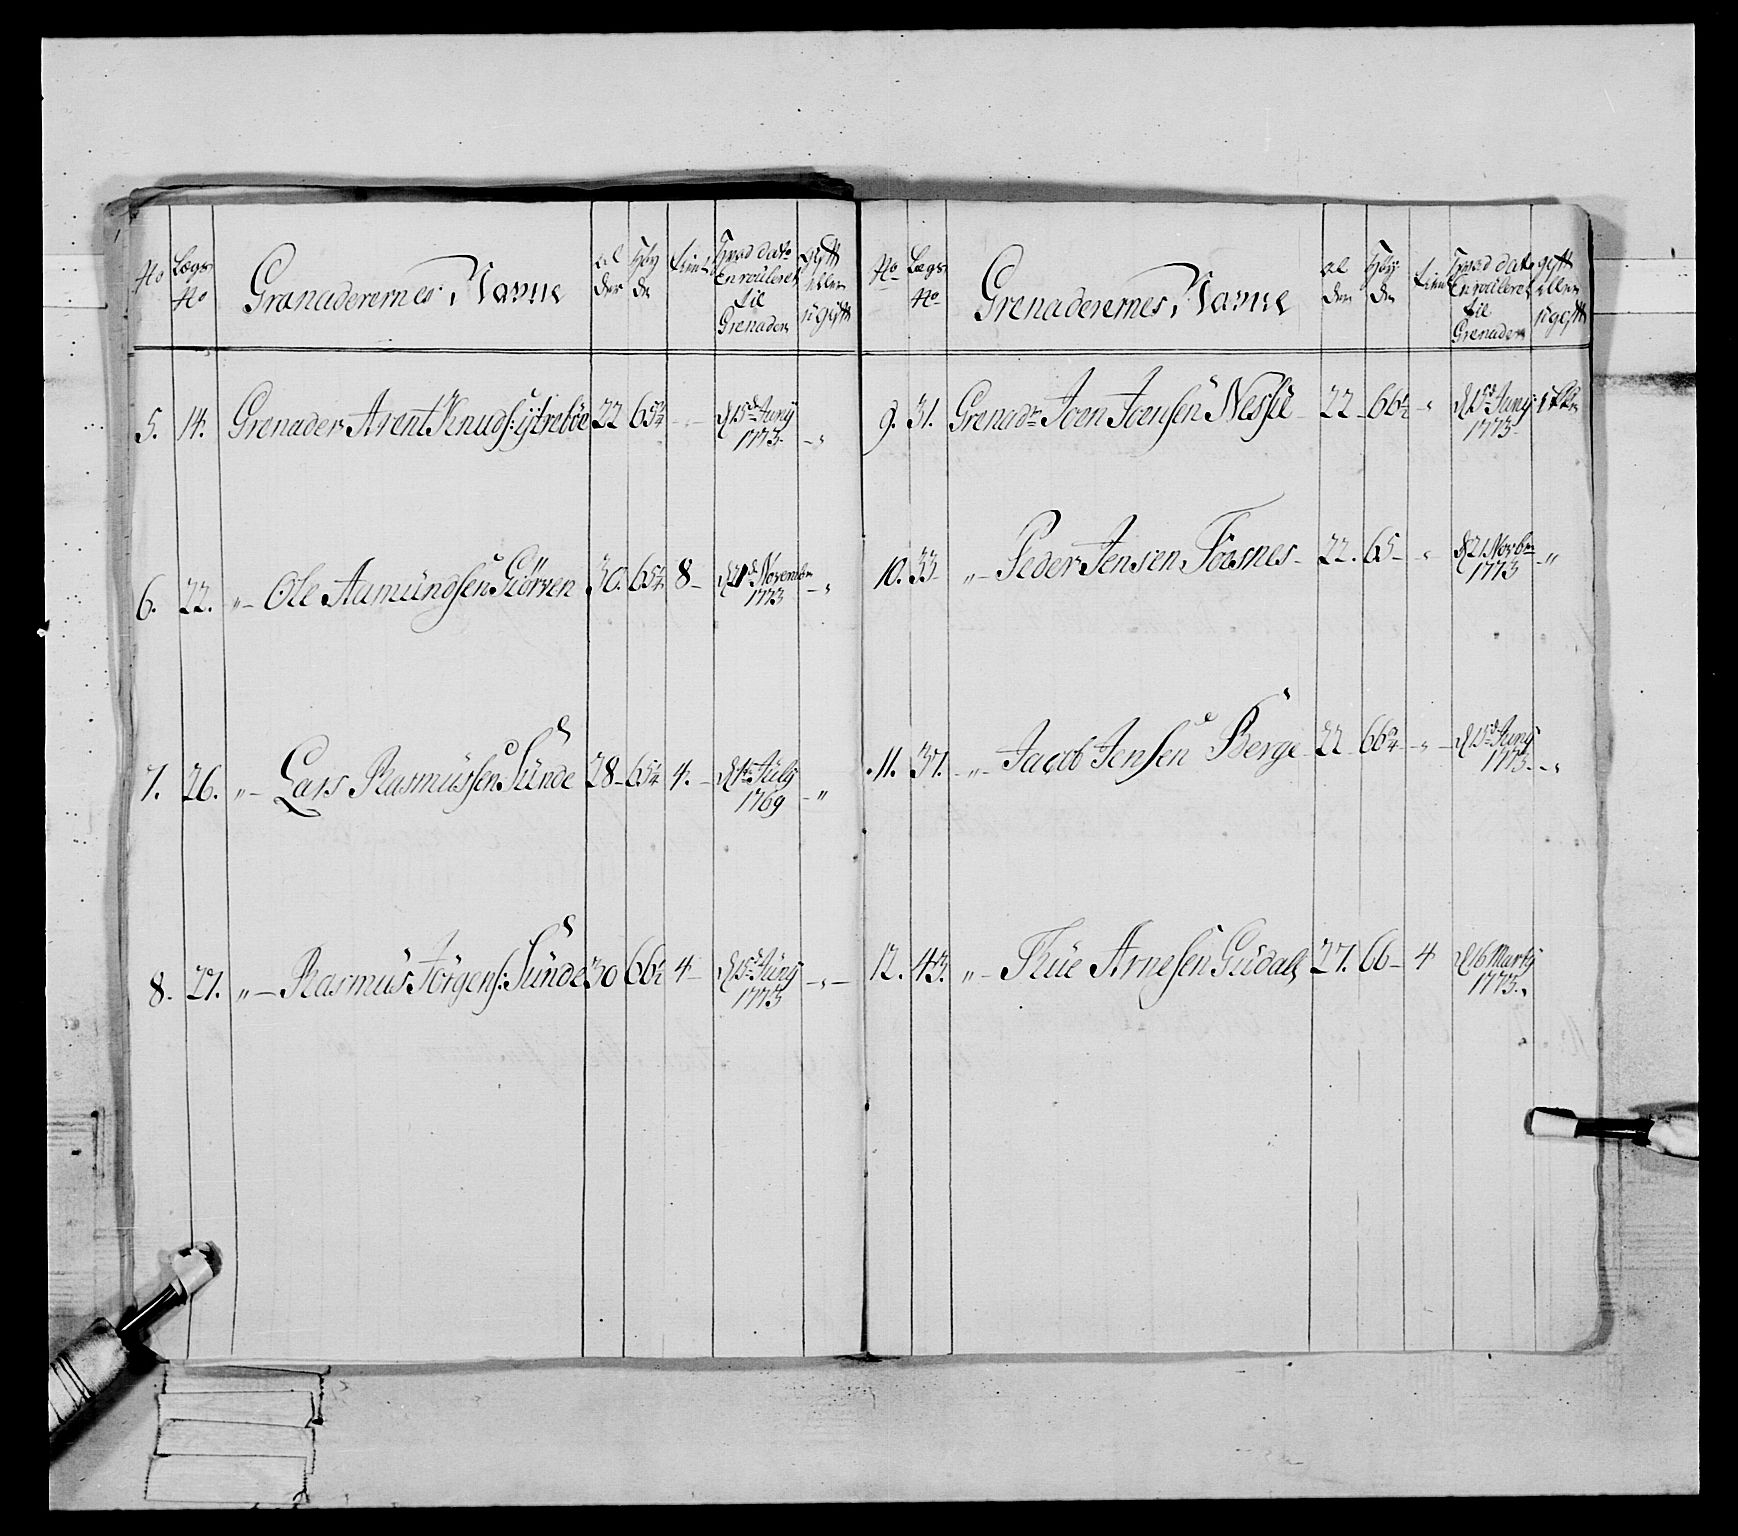 No Lægs No Grenaderernes Navne al der Høy de tient Hvad dato Enroulleret til Grenader gift eller ugift
5. 14. Grenader Arent Knuds: ytrebøe 22 65¾ - - d 15de Juny 1773 - "
6. 22. "- Ole Aamundsen Giörven 30. 65¼ 8 - d 21de Novembr 1773 - "
7. 26. "- Lars Rasmussen Sünde 28 - 65¼ 4. - d 1te July 1769 - "
8. 27. "- Rasmus Jörgens: Sünde 30 66½ 4 - d 15de Juny 1773 - " -
No Lægs No Grenaderernes Navne al der Høy de tient Hvad dato Enroulleret til Grenader gift eller ugift
9. 31. Grenadr Joen Joensen Nessie - 22 - 66½ " d 15de Juny 1773
10. 33 "- Peder Jensen Föesnes - 22. 65 - " d 21 Novbr 1773 - "
11. 37. - "- Jacob Jensen Berge 22 66¾ - " - d 15de Juny 1773 - "
12. 43. "- Thüe Arnesen Güdals 27. 66 - 4 d 16 Marty 1773. "